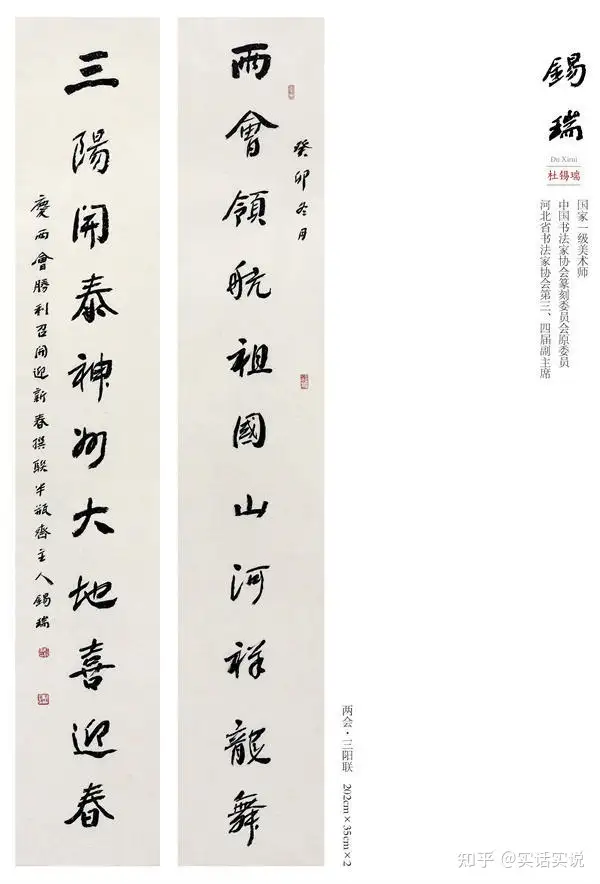 錫瑞
Du Xirui
杜锡瑞
国家一级美术师
中国书法家协会篆刻委员会原委员
河北省书法家协会第三、四届副主席
癸卯冬月
兩會領航祖國山河祥龍舞
三陽開泰神州大地喜迎春
慶兩會勝利召開迎新春撰联半瓶齋主人錫瑞
两会·三阳联 202cm×35cm×2
知乎 @实话实说